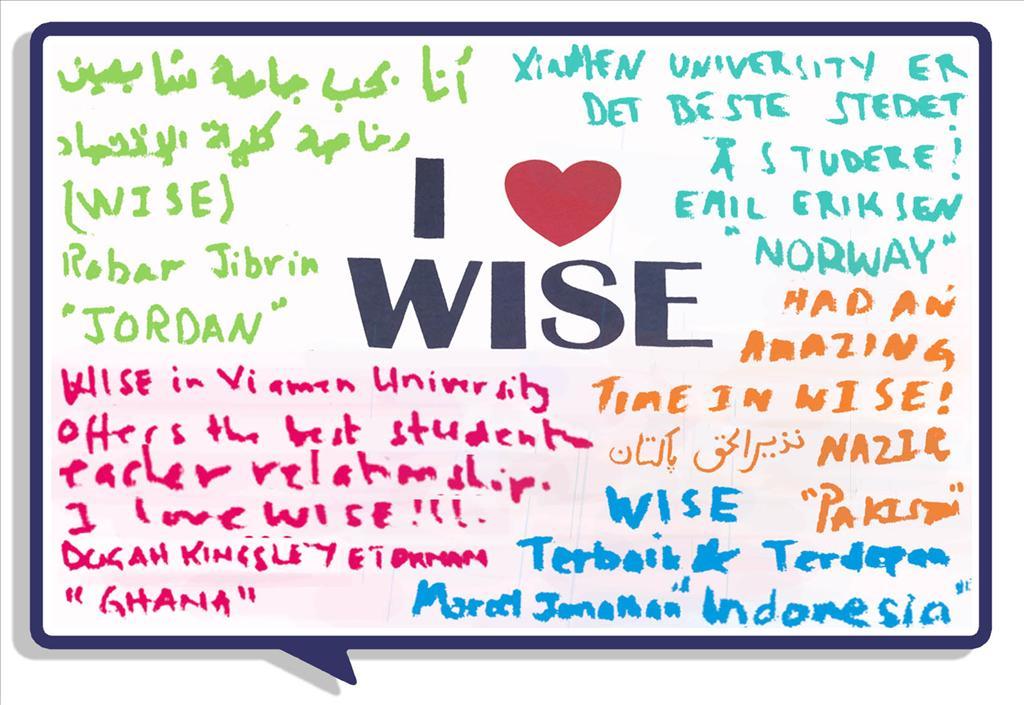 أنا بحب جامعة شيامين
وخاصة كلية الإقتصاد
(WISE)
Rabar Jibrin
"JORDAN"
XIAMEN UNIVERSITY ER
DET BESTE STEDET
Å STUDERE!
EMIL ERIKSEN
"NORWAY"
I ❤
WISE
HAD AN
AMAZING
TIME IN WISE!
نذیر الحق پاکستان NAZIR
"PAKISTAN"
WISE in Xiamen University
offers the best student
teacher relationship.
I love WISE!!!.
KINGSLEY
"GHANA"
WISE
Terbaik & Terdepan
Marcel "Indonesia"